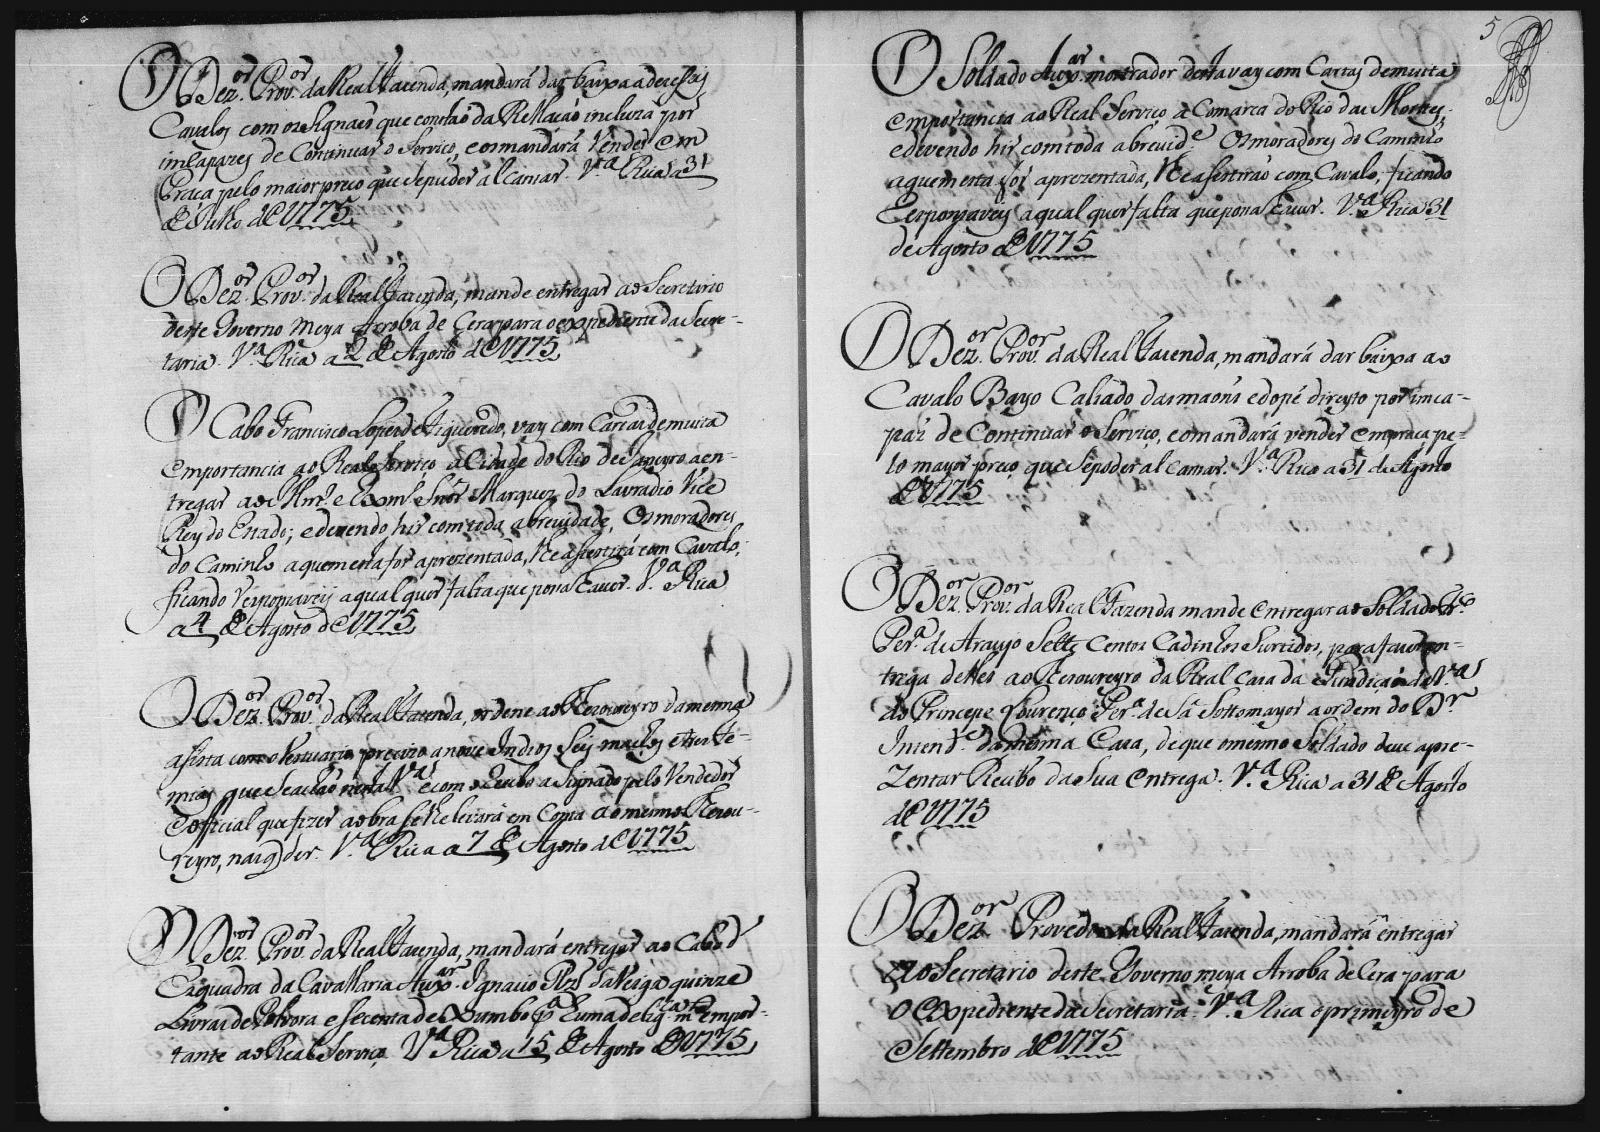 O Dez.or Prov.or da Real Fazenda, mandará dar baixa a dezeseis
Cavalos com os Signaes que constaõ da Rellaçaõ incluza por
incapazes de Continuar o Serviço, e os mandará Vender em
Praça pelo maior preço que se puder alcansar. V.a Rica a 31
de Julho de 1775
O Dez.or Prov.or da Real Fazenda, mande entregar ao Secretario
deste Governo meya Arroba de Cera para o expediente da Secre-
taria. V.a Rica a 2 de Agosto de 1775
O Cabo Francisco Lopes de Figueiredo, vay com Cartas de muita
emportancia ao Real Serviço á Cidade do Rio de Janeyro a en-
tregar ao Illm.o e Exm.o Snõr Marquez do Lavradio Vice
Rey do Estado; e devendo hir com toda a brevidade, Os moradores
do Caminho a quem esta for aprezentada, lhe asestirá com Cavalo,
ficando responsaveis a qual quer falta que possa haver. V.a Rica
a 4 de Agosto de 1775
O Dez.or Prov.or da Real Fazenda, ordene ao Thezoureyro da mesma
asista com o Vestuario precizo a nove Indios Seis machos e tres fe-
meas que se achaõ nesta V.a e com o Recibo asignado pelo Vendedor
e official que fizer a obra se lhe levará em Conta ao mesmo Thezou-
reyro, nas q der. V.a Rica a 7 de Agosto de 1775
O Dez.or Prov.or da Real Fazenda, mandará entregar ao Cabo d'
Ezquadra da Cavallaria Aux.ar Ignacio da Veiga quinze
Livras de Polvora e secenta de Xumbo p.a huma delig.ca m.to empor-
tante ao Real Serviço. V.a Rica a 15 de Agosto de 1775
5
O Soldado Aux.ar mostrador desta vay com Cartas de muita
emportancia ao Real Serviço á Comarca do Rio das Mortes,
e devendo hir com toda a brevid.e Os moradores do Caminho
a quem esta for aprezentada, lhe asestiraõ com Cavalo, ficando
responsaveis a qual quer falta que possa haver. V.a Rica 31
de Agosto de 1775
O Dez.or Prov.or da Real Fazenda, mandará dar baixa ao
Cavalo Bayo Calsado das maõns e do pé direyto por inca-
paz de Continuar o Serviço, e o mandará vender em praça pe-
lo mayor preço que se poder alcansar. V.a Rica a 31 de Agosto
de 1775
O Dez.or Prov.or da Real Fazenda mande entregar ao Soldado
Per.a de Araujo Sette Centos Cadinhos Surtidos, para fazer en-
trega delles ao Thezoureyro da Real Caza da Fundiçaõ da V.a
do Principe Lourenço Per.a de Sá Sottomayor a ordem do D.r
Intend.e da mesma Caza, de que o mesmo Soldado deve apre-
zentar Recibo da Sua entrega. V.a Rica a 31 de Agosto
de 1775
O Dez.or Provedor da Real Fazenda, mandará entregar
ao Secretario deste Governo meya Arroba de Cera para
o Expediente da Secretaria. V.a Rica o primeyro de
Settembro de 1775